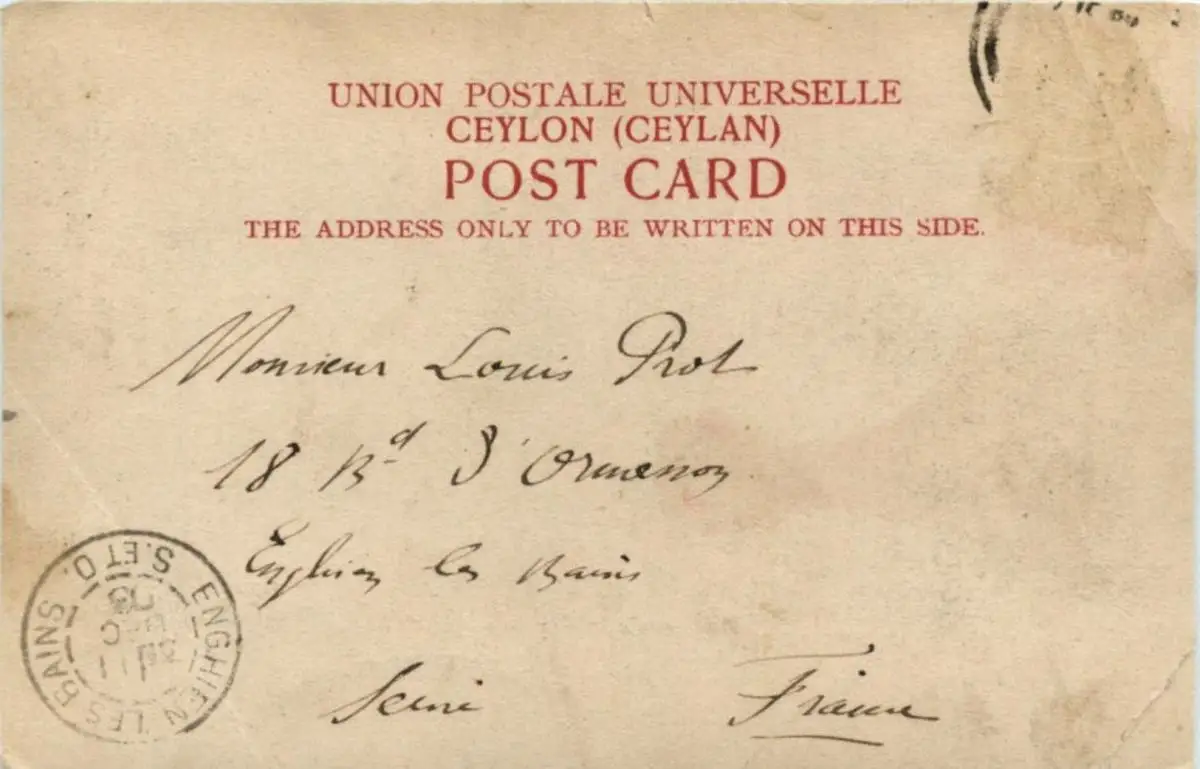 UNION POSTALE UNIVERSELLE
CEYLON (CEYLAN)
POST CARD
THE ADDRESS ONLY TO BE WRITTEN ON THIS SIDE.
Monsieur Louis Prot
18 Bd d'Ormesson
Enghien les Bains
Seine France
ENGHIEN LES BAINS S.ET O.